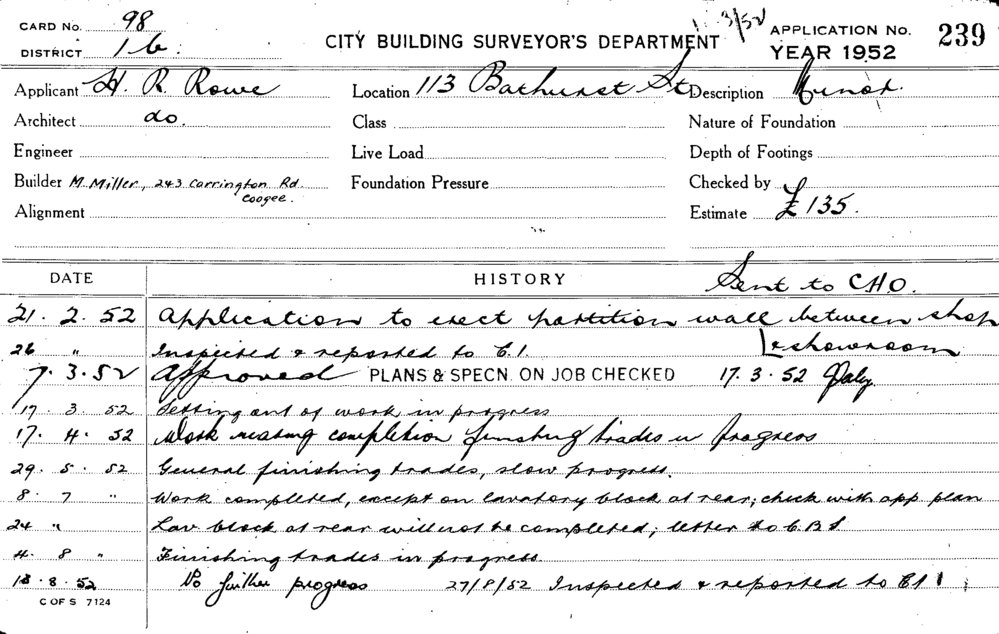 CARD No. 98
DISTRICT 1 b.
CITY BUILDING SURVEYOR'S DEPARTMENT
3/52
APPLICATION No. 239
YEAR 1952
Applicant H. R. Rowe
Location 113 Bathurst St
Description Minor.
Architect do.
Class
Nature of Foundation
Engineer
Live Load
Depth of Footings
Builder M. Miller, 243 Carrington Rd. Coogee.
Foundation Pressure
Checked by
Alignment
Estimate £135.
DATE
HISTORY
Sent to CHO.
21. 2. 52 Application to erect partition wall between shop & showroom
26 " Inspected & reported to C.I.
7. 3. 52 Approved PLANS & SPECN. ON JOB CHECKED 17. 3. 52 Daly
17. 3. 52 Setting out of work in progress
17. 4. 52 Work nearing completion finishing trades in progress
29. 5. 52 General finishing trades, slow progress.
8. 7 " Work completed, except on lavatory block at rear; check with app plan
24 " Lav block at rear will not be completed; letter to C.B.S
4. 8 " Finishing trades in progress
18. 8. 52 No further progress 27/8/52 Inspected & reported to C.I
C OF S 7124